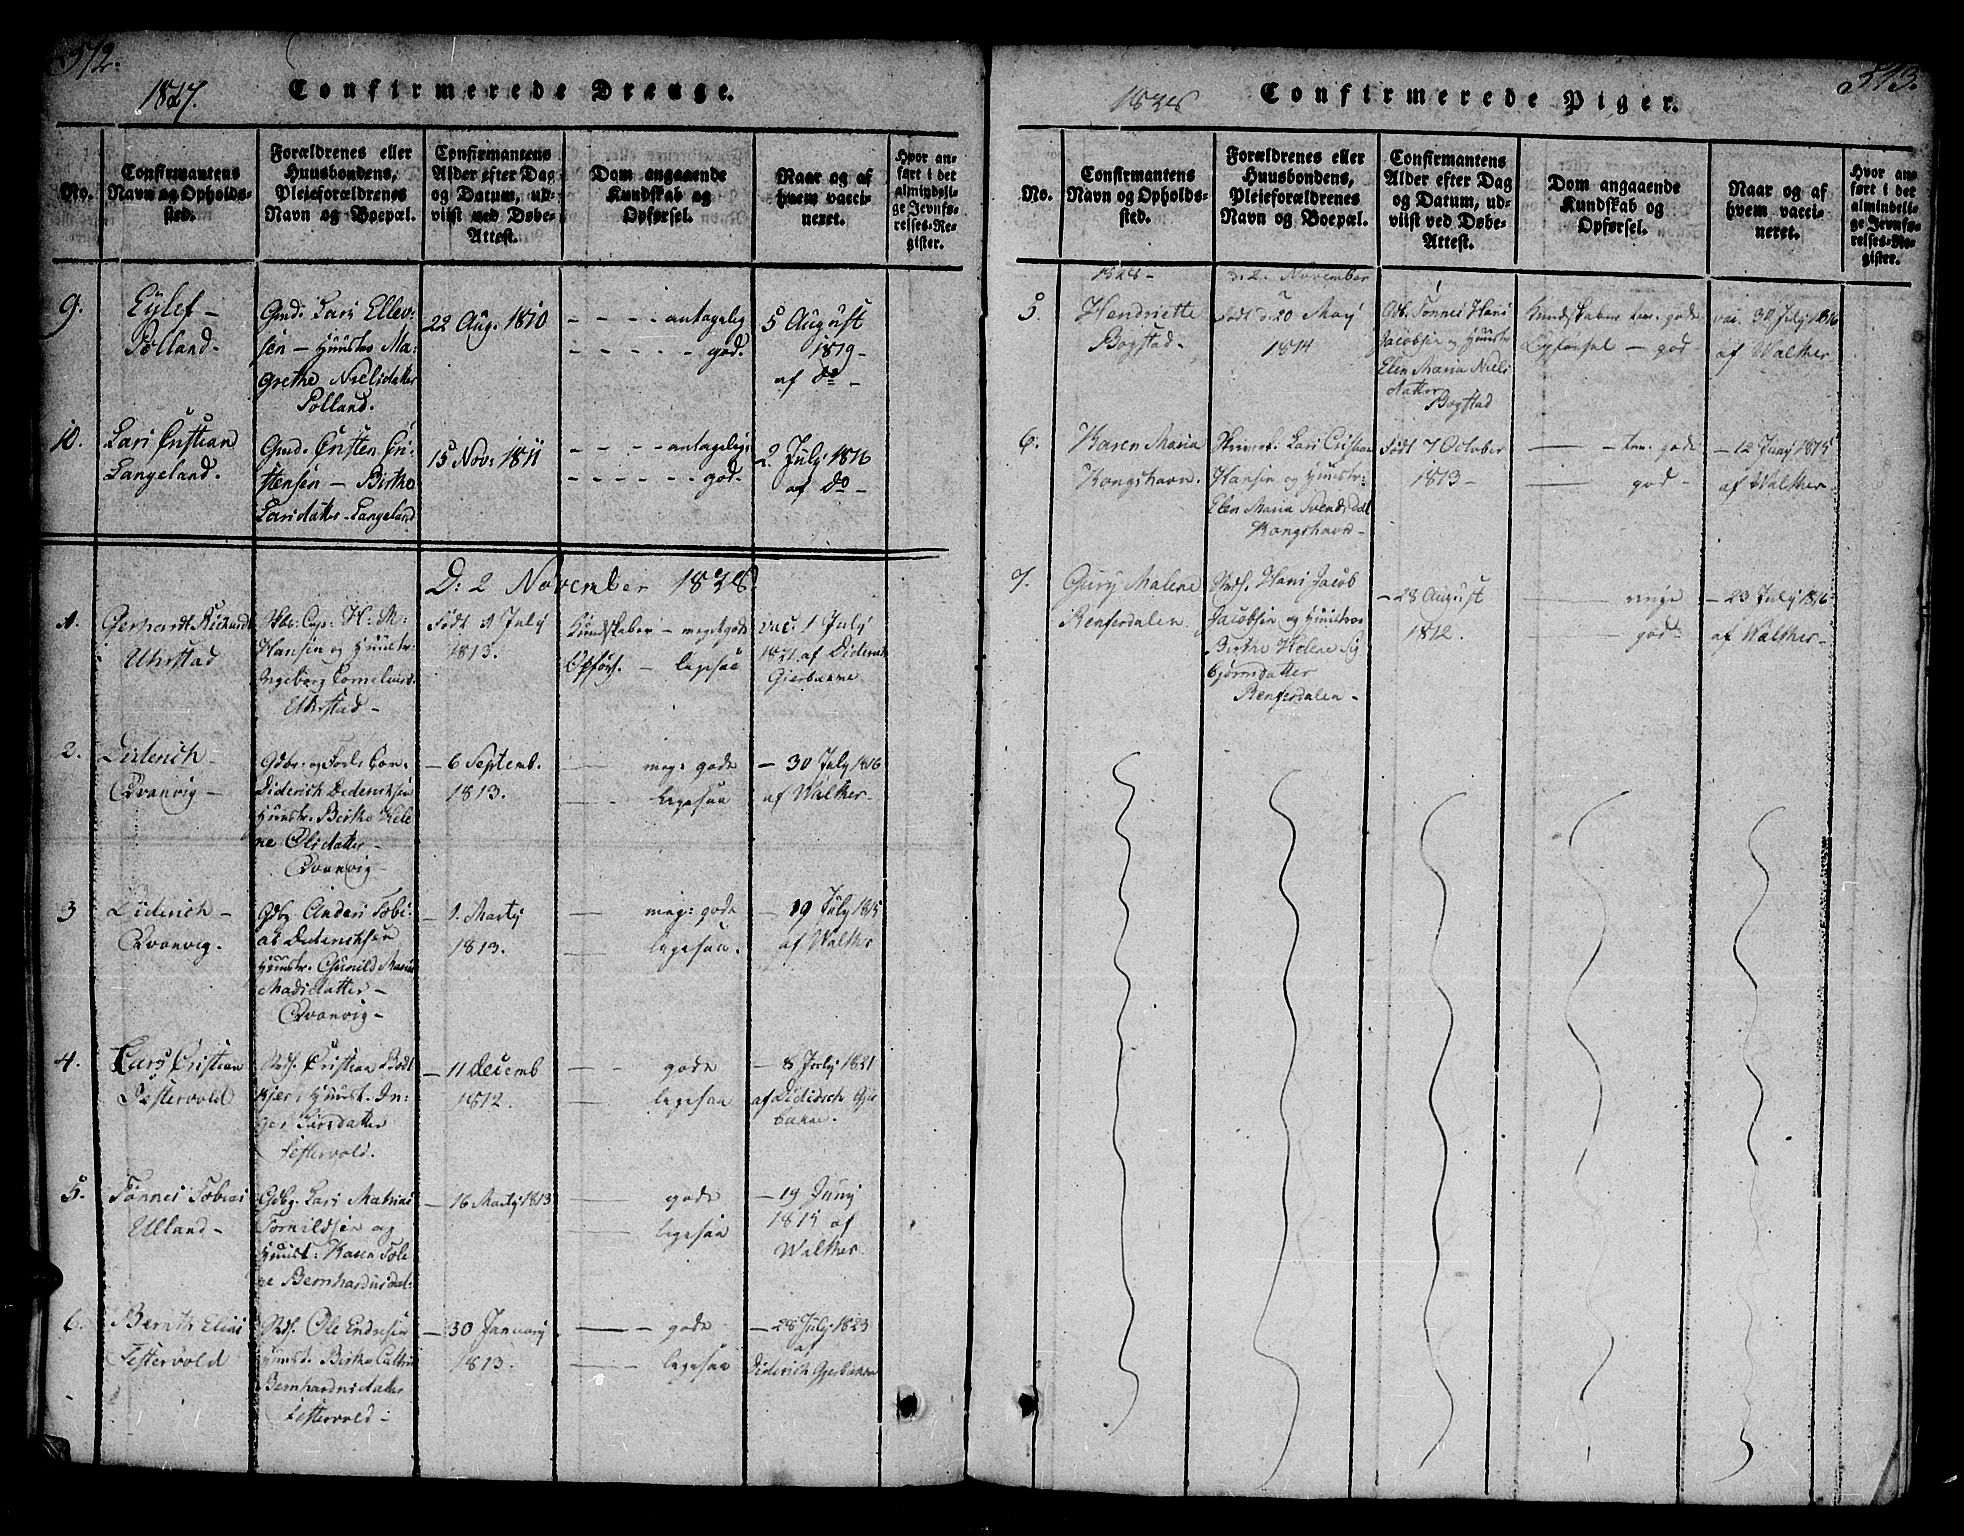 512.
1827.
Confirmerede Drenge.
No.
Confirmantens Navn og Opholds-sted.
Forældrenes eller Huusbondens, Pleieforældrenes Navn og Boepæl.
Confirmantens Alder efter Dag og Datum, ud-viist ved Døbe-Attest.
Dom angaaende Kundskab og Opførsel.
Naar og af hvem vacci-neret.
Hvor an-ført i det almindeli-ge Jevnfø-relses-Re-gister.
9.
Eylef -
Polland.
Gmd. Lars Ellev-
sen - Huustro Ma-
grethe Nielsdatter
Polland.
22 Aug. 1810
- - - - antagelig
- - - - - god.
5 August
1819 -
af do -
10.
Lars Cristian
Langeland.
Gmd. Cristen Cri-
stensen - Birthe
Larsdatter Langeland
15 Nov: 1811
- - - - antagelig
- - - - - god.
2 July 1816
af do -
D: 2 November 1828
1.
Gerhardt Richardt
Uhrstad
Hansen og Huustr.
Ingeborg
Uhrstad -
Født 1 July
1813.
Kundskaber - meget gode
Opførs. - ligesaa
vac: 1 July
1821 af Diderich
Gierbakne
2.
Diderich
Qvanvig -
Diderich Dideriksen
Huustr. Birthe Hele-
ne Olsdatter -
Qvanvig -
- 6 Septemb.
1813.
meg: gode
ligesaa
- 30 July 1816
af Walther -
3
Diderich -
Qvanvig.
Gdbr. Anders Tobi-
as Dideriksen
Huustr. Gunild Marie
Madsdatter -
Qvanvig -
- 1. Martj
1813.
meg: gode
ligesaa.
- 19 July 1815
af Walther
4.
Lars Cristian
Festervold
Cristian Bod
kjer; Huust. In-
ger Larsdatter
Festervold.
- 11 Decemb
1812.
gode
ligesaa
- 8 July 1821
af Diderich Gier
bakne.
5.
Tønnes Tobias
Ulland -
Gdbr. Lars Mathias
Tornildsen og
Huust: Karen Tobi-
ne Bernhardusdat-
- 16 Martj 1813
gode
ligesaa
- 19 Junij
1815 af
Walther
6.
Bernth Elias
Festervold
Ole Endresen
Huust. Birthe Cathri
Bernhardusdatter
Festervold -
- 30 January
1813.
- gode
ligesaa
- 28 July 1823
af
Diderich Gjerbakne
513.
1828
Confirmerede Piger.
No.
Confirmantens Navn og Opholds-sted.
Forældrenes eller Huusbondens, Pleieforældrenes Navn og Boepæl.
Confirmantens Alder efter Dag og Datum, ud-viist ved Døbe-Attest.
Dom angaaende Kundskab og Opførsel.
Naar og af hvem vacci-neret.
Hvor an-ført i det almindeli-ge Jevnfø-relses-Re-gister.
1828 -
d: 2. November
5.
Hendriette
Bogstad -
Født d: 20 Maij
1814
Tønnes Hans
Jacobsen og Huustr
Elen Maria Niels
datter
Bogstad
Kundskaber tem. gode
Opførsel - god -
vac. 30 July 1816
af Walther
6.
Karen Maria
Kongshavn.
Lars Cristian
Hansen og Huustr:
Elen Maria Svends dat
Kongshavn -
Født 7 October
1813 -
tem. gode
god -
- 12 Junij 1815
af Walther
7.
Gury Malene
Renferdalen
Hans Jacob
Jacobsen og Huustroe
Birthe Helene Sig
bjørnsdatter
Renferdalen -
- 28 August
1812.
ringe
god -
- 23 July 1816 -
af Walther -